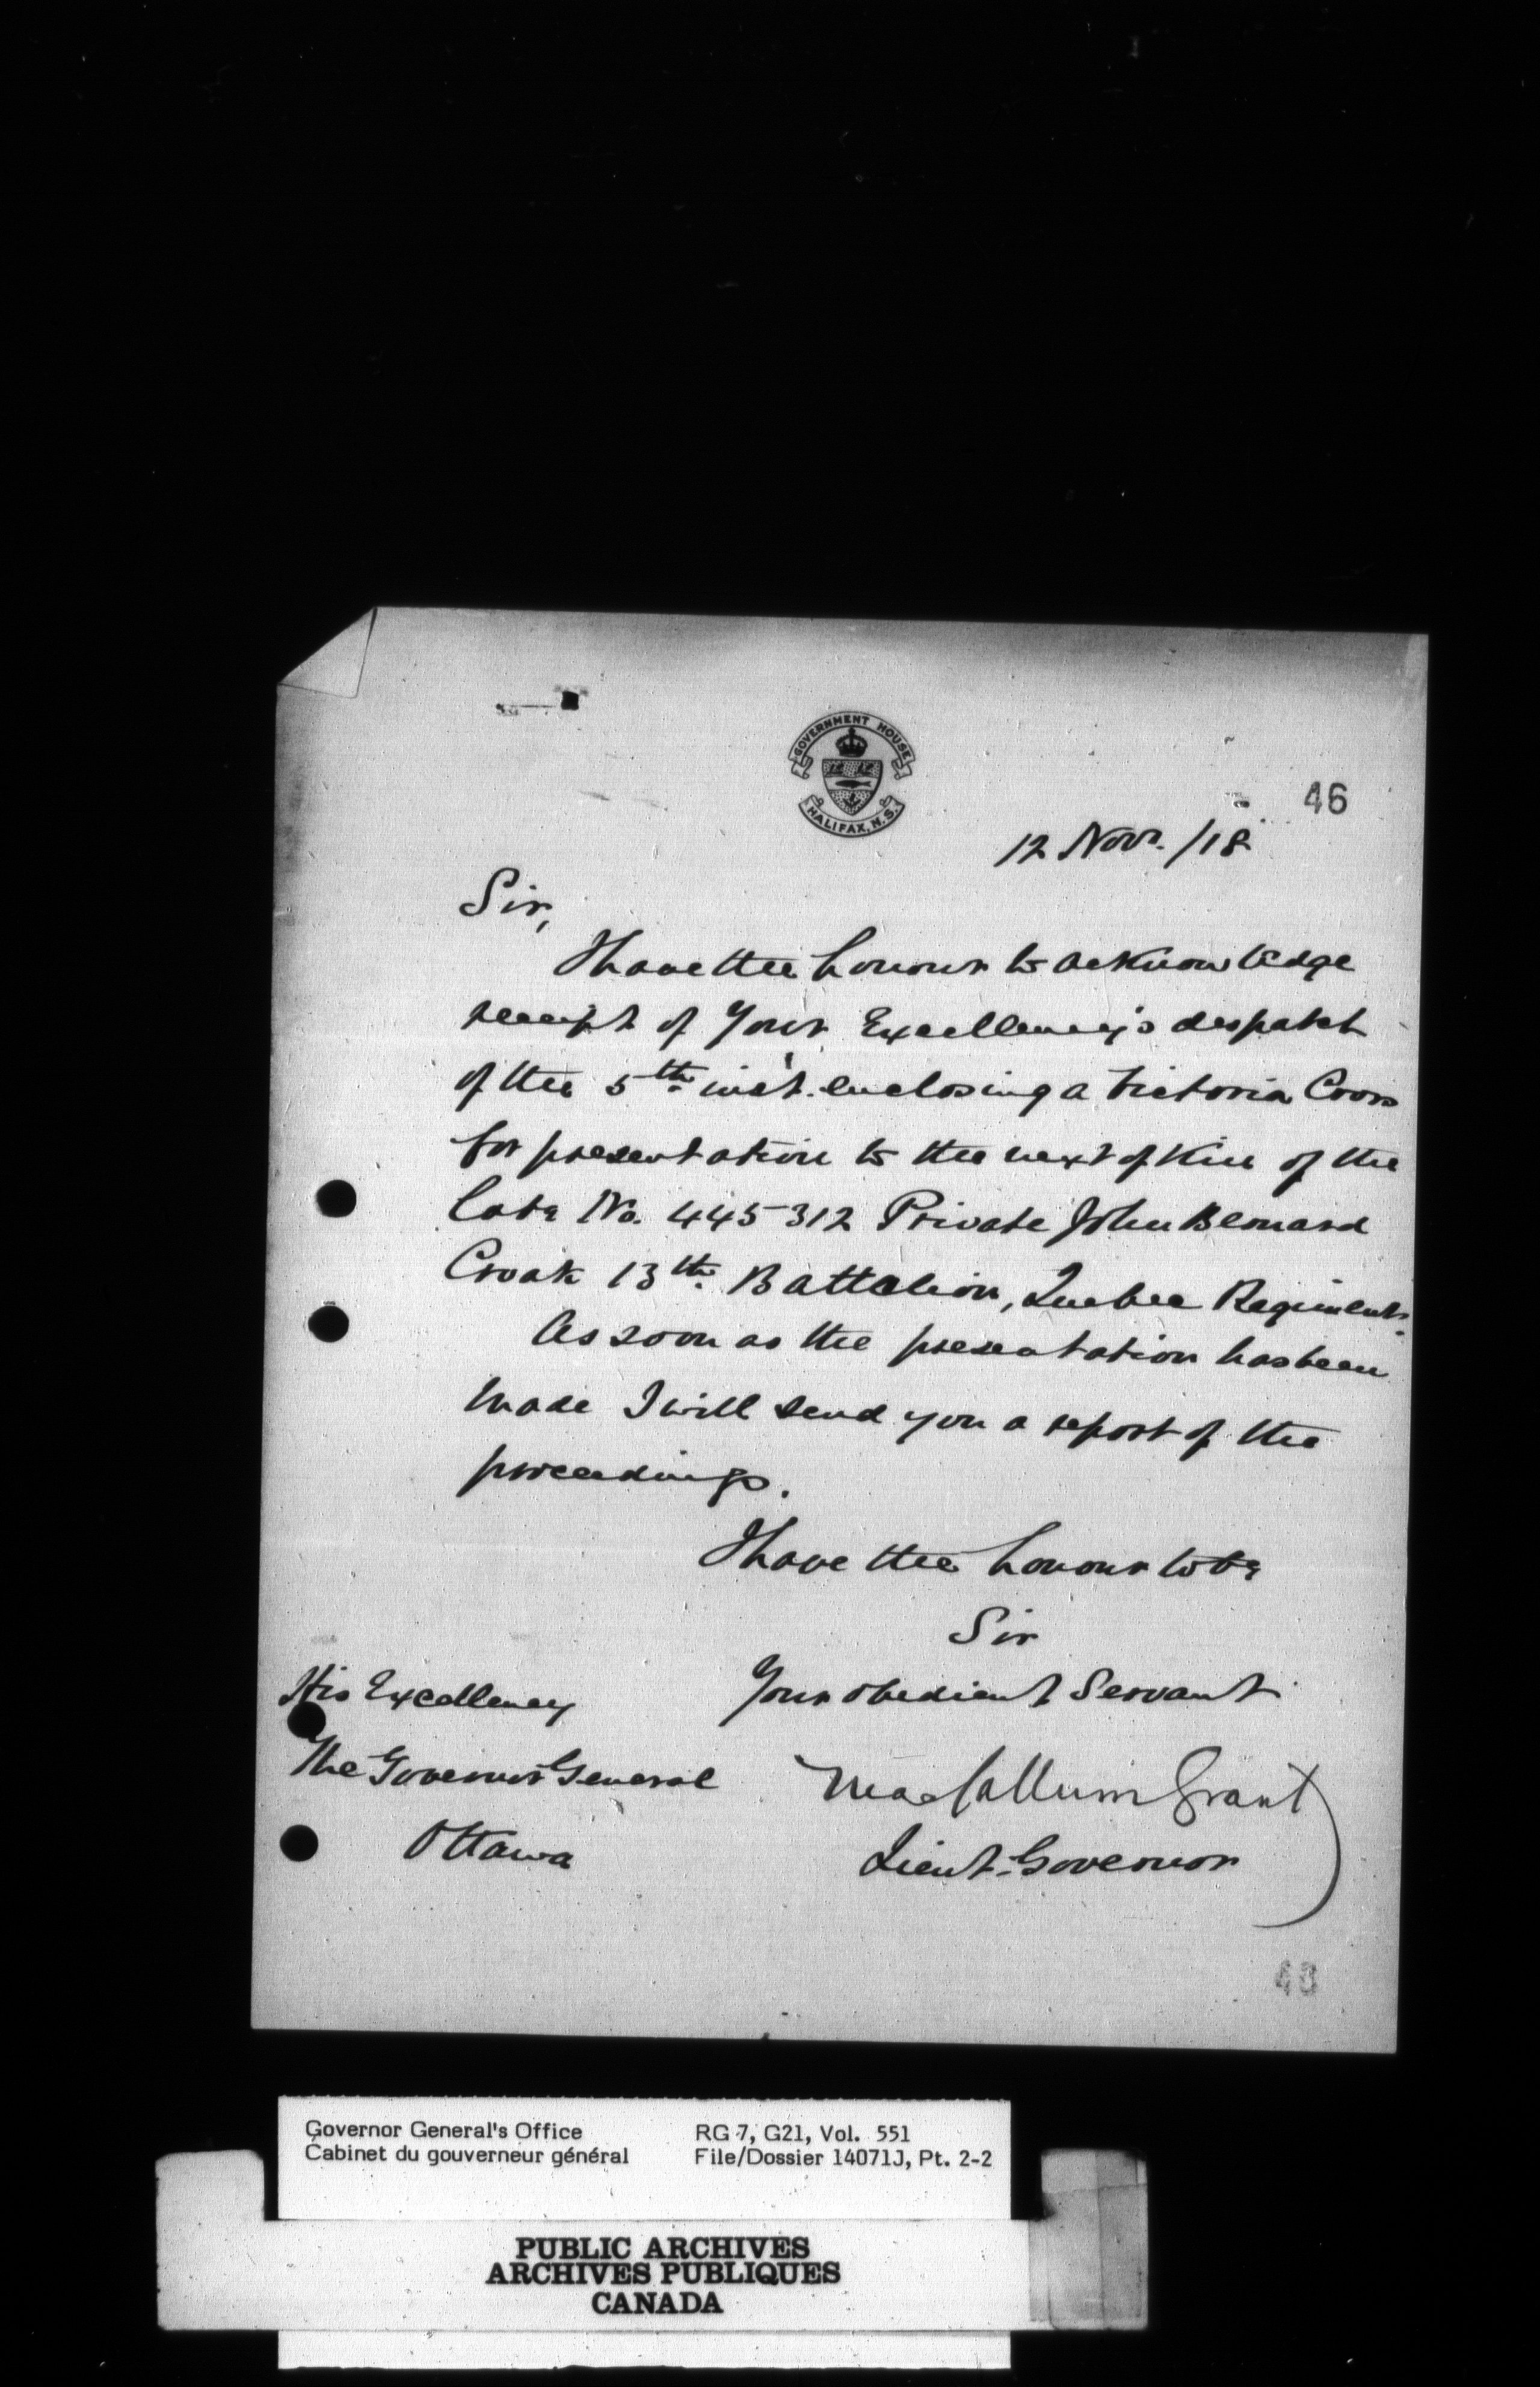 GOVERNMENT HOUSE
HALIFAX, N.S.
46
12 Novr. /18
Sir,
I have the honour to acknowledge
receipt of Your Excellency's despatch
of the 5th inst. enclosing a Victoria Cross
for presentation to the next of kin of the
late No. 445312 Private John Bernard
Croak 13th Battalion, Quebec Regiment.
As soon as the presentation has been
made I will send you a report of the
proceedings.
I have the honour to be
Sir
Your obedient Servant
MacCallum Grant
Lieut. Governor
His Excellency
The Governor General
Ottawa
48
Governor General's Office
Cabinet du gouverneur général
RG 7, G21, Vol. 551
File/Dossier 14071J, Pt. 2-2
PUBLIC ARCHIVES
ARCHIVES PUBLIQUES
CANADA